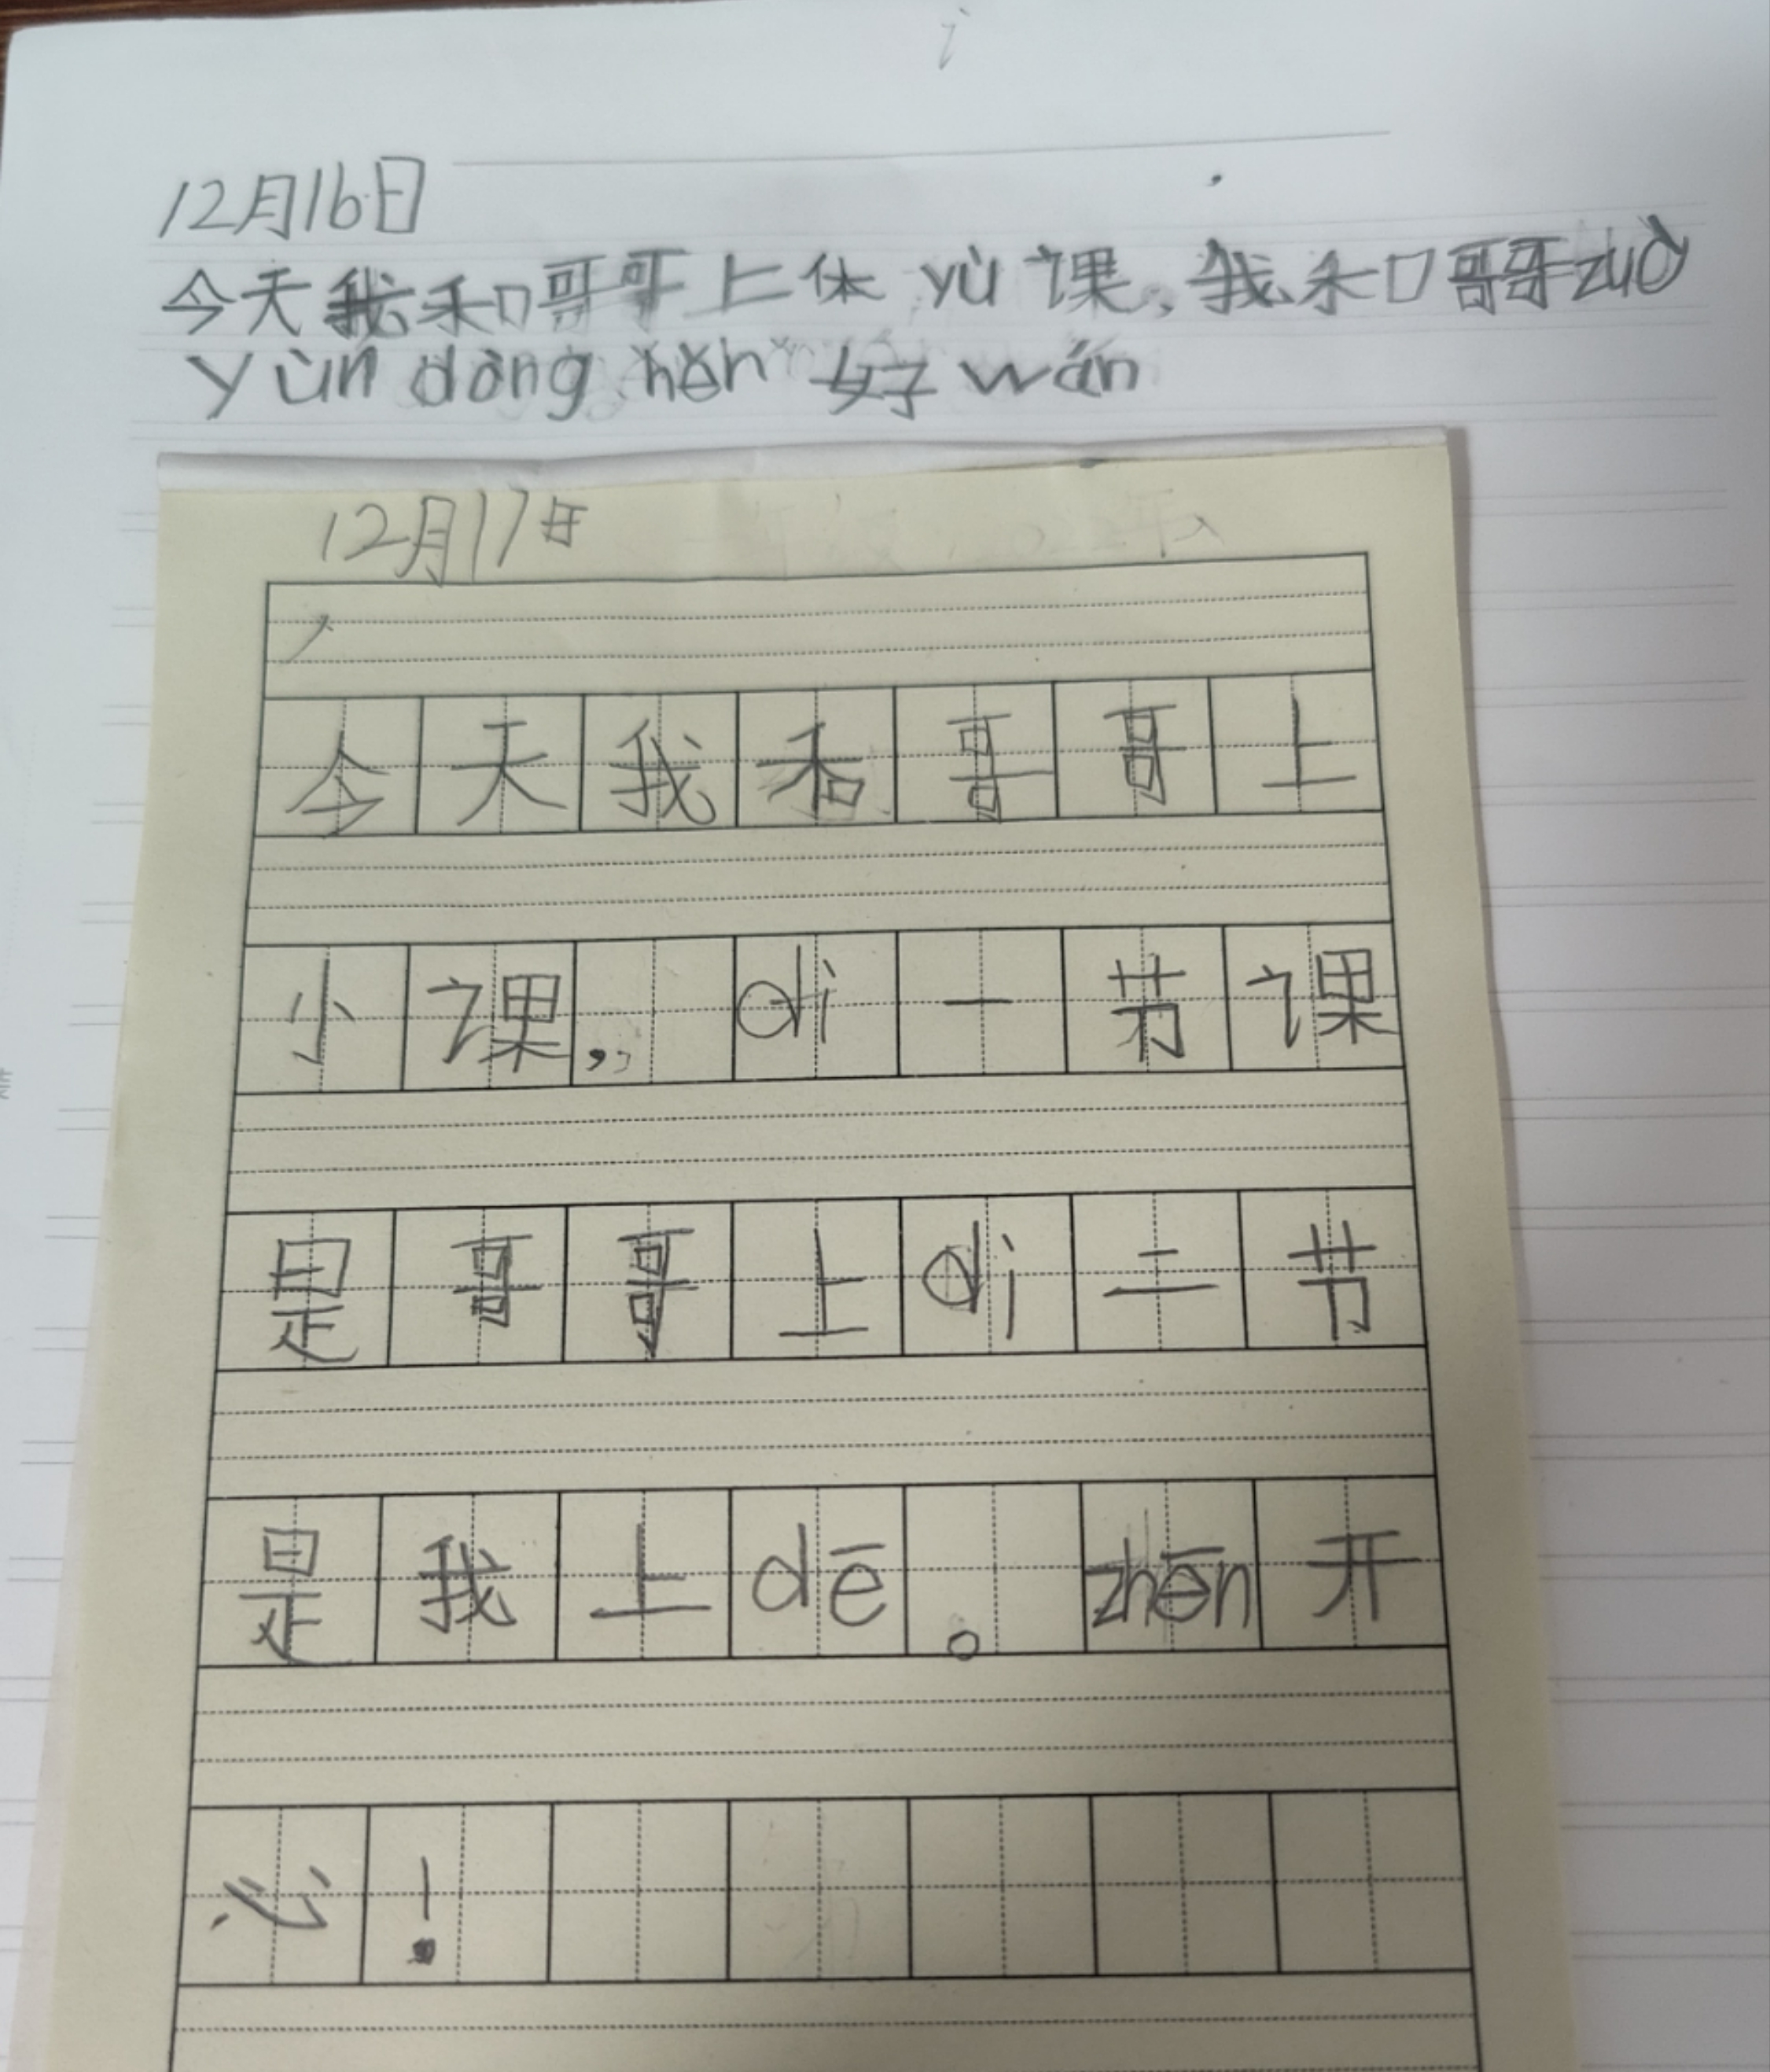 12月16日
今天我和哥哥上体yù课,我和哥哥zuò
yùn dòng hěn好wán
12月17日
今天我和哥哥上
小课,di一节课
是哥哥上di二节
是我上dē。zhēn开
心!